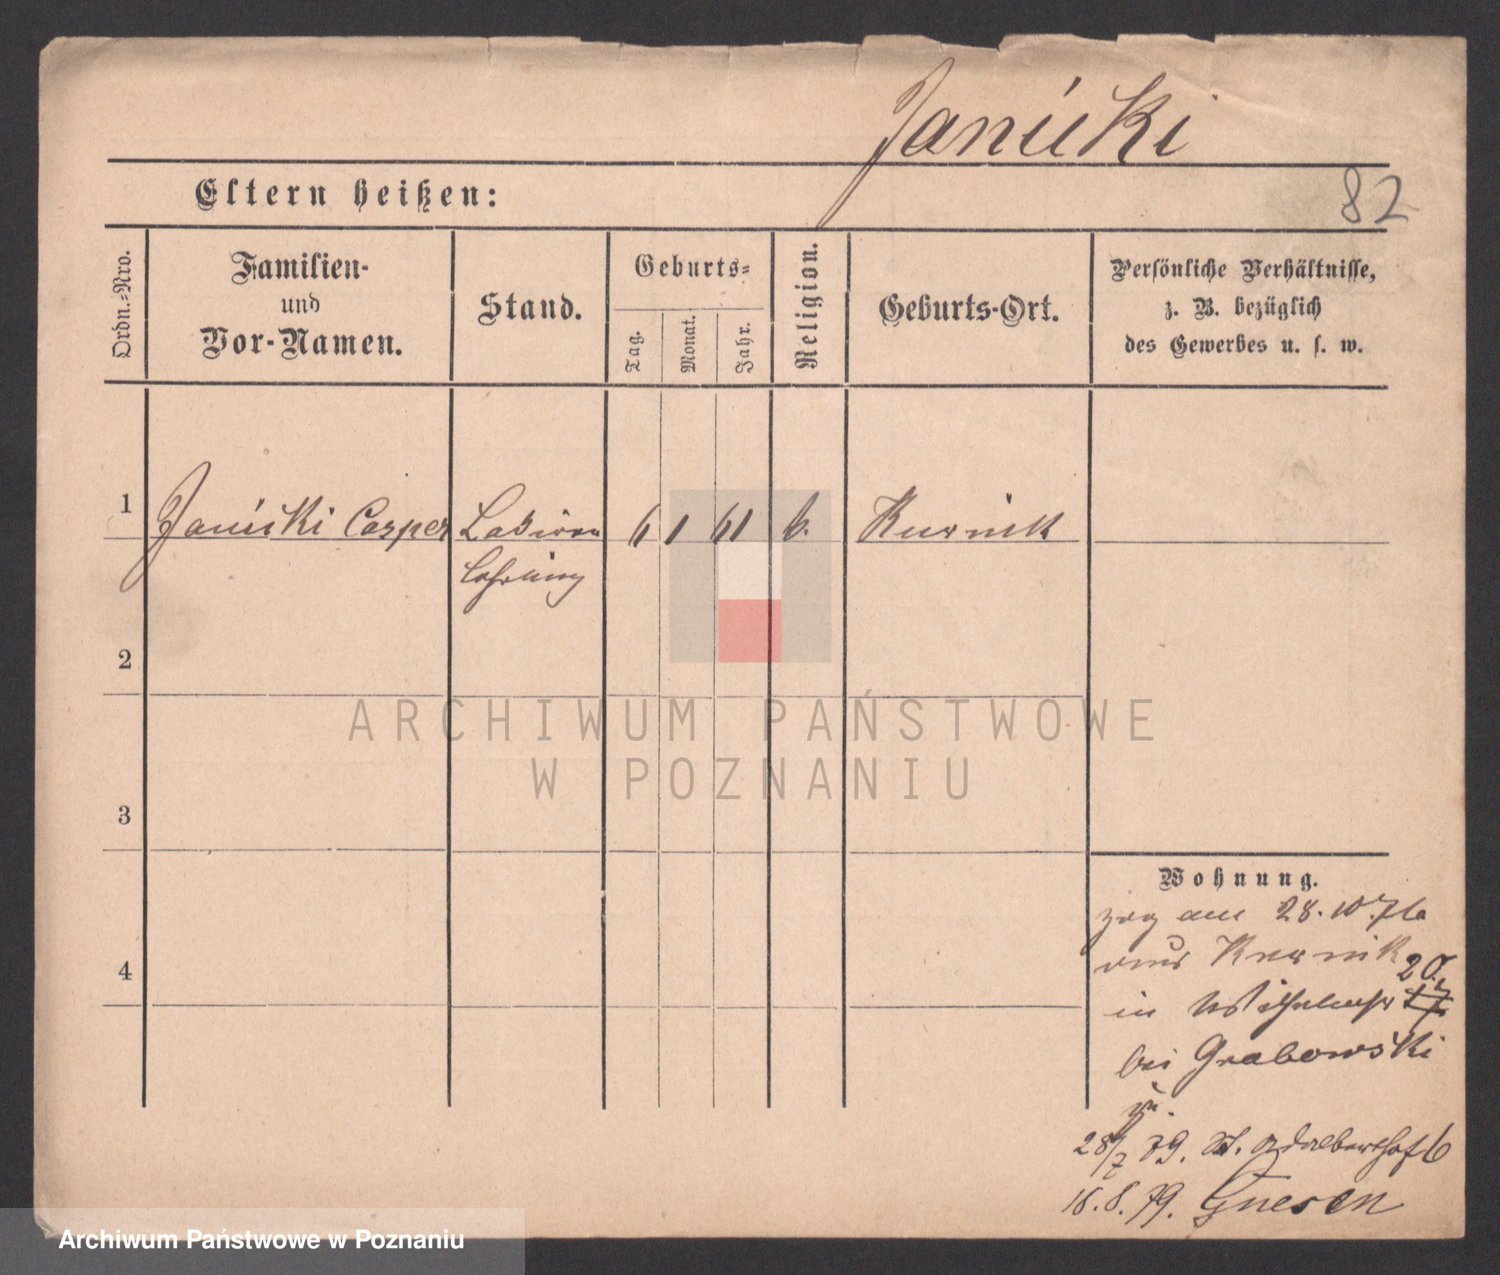 Janicki
82
Eltern heißen:
Ordn.-Nro.
Familien-
und
Vor-Namen.
Stand.
Geburts-
Tag.
Monat.
Jahr.
Religion.
Geburts-Ort.
Persönliche Verhältnisse,
z. B. bezüglich
des Gewerbes u. s. w.
1
Janicki Casper
6 1 61
k.
Kurnik
Lehrling
2
ARCHIWUM PAŃSTWOWE
W POZNANIU
3
Wohnung.
zog am 28.10.76
aus Kurnik
20
in Wilhelmstr 17
bei Grabowski
4
28/7 79. St. Adalberthof 6
16.8.79. Gnesen
Archiwum Państwowe w Poznaniu